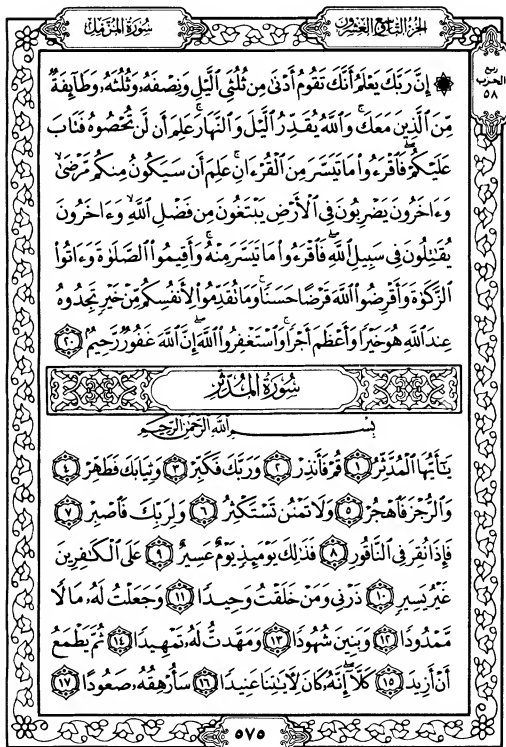 الجزء التاسع والعشرون
سورة المزمل
ربع
الحزب
٥٨
۞ إِنَّ رَبَّكَ يَعْلَمُ أَنَّكَ تَقُومُ أَدْنَىٰ مِن ثُلُثَيِ ٱلَّيْلِ وَنِصْفَهُۥ وَثُلُثَهُۥ وَطَآئِفَةٌ
مِّنَ ٱلَّذِينَ مَعَكَ ۚ وَٱللَّهُ يُقَدِّرُ ٱلَّيْلَ وَٱلنَّهَارَ ۚ عَلِمَ أَن لَّن تُحْصُوهُ فَتَابَ
عَلَيْكُمْ ۖ فَٱقْرَءُوا۟ مَا تَيَسَّرَ مِنَ ٱلْقُرْءَانِ ۚ عَلِمَ أَن سَيَكُونُ مِنكُم مَّرْضَىٰ ۙ
وَءَاخَرُونَ يَضْرِبُونَ فِى ٱلْأَرْضِ يَبْتَغُونَ مِن فَضْلِ ٱللَّهِ ۙ وَءَاخَرُونَ
يُقَـٰتِلُونَ فِى سَبِيلِ ٱللَّهِ ۖ فَٱقْرَءُوا۟ مَا تَيَسَّرَ مِنْهُ ۚ وَأَقِيمُوا۟ ٱلصَّلَوٰةَ وَءَاتُوا۟
ٱلزَّكَوٰةَ وَأَقْرِضُوا۟ ٱللَّهَ قَرْضًا حَسَنًا ۚ وَمَا تُقَدِّمُوا۟ لِأَنفُسِكُم مِّنْ خَيْرٍ تَجِدُوهُ
عِندَ ٱللَّهِ هُوَ خَيْرًا وَأَعْظَمَ أَجْرًا ۚ وَٱسْتَغْفِرُوا۟ ٱللَّهَ ۖ إِنَّ ٱللَّهَ غَفُورٌ رَّحِيمٌۢ ٢٠
سورة المدثر
بِسْمِ ٱللَّهِ ٱلرَّحْمَـٰنِ ٱلرَّحِيمِ
يَـٰٓأَيُّهَا ٱلْمُدَّثِّرُ ١ قُمْ فَأَنذِرْ ٢ وَرَبَّكَ فَكَبِّرْ ٣ وَثِيَابَكَ فَطَهِّرْ ٤
وَٱلرُّجْزَ فَٱهْجُرْ ٥ وَلَا تَمْنُن تَسْتَكْثِرُ ٦ وَلِرَبِّكَ فَٱصْبِرْ ٧
فَإِذَا نُقِرَ فِى ٱلنَّاقُورِ ٨ فَذَٰلِكَ يَوْمَئِذٍ يَوْمٌ عَسِيرٌ ٩ عَلَى ٱلْكَـٰفِرِينَ
غَيْرُ يَسِيرٍ ١٠ ذَرْنِى وَمَنْ خَلَقْتُ وَحِيدًا ١١ وَجَعَلْتُ لَهُۥ مَالًا
مَّمْدُودًا ١٢ وَبَنِينَ شُهُودًا ١٣ وَمَهَّدتُّ لَهُۥ تَمْهِيدًا ١٤ ثُمَّ يَطْمَعُ
أَنْ أَزِيدَ ١٥ كَلَّآ ۖ إِنَّهُۥ كَانَ لِـَٔايَـٰتِنَا عَنِيدًا ١٦ سَأُرْهِقُهُۥ صَعُودًا ١٧
٥٧٥